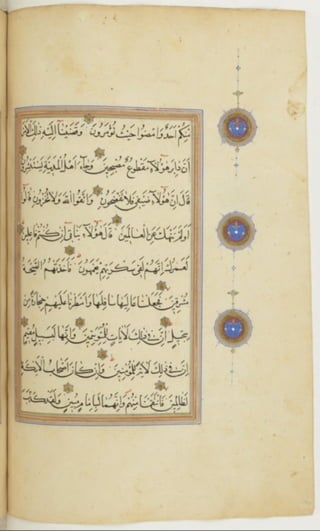 منكم احد وامضوا حيث تؤمرون وقضينا اليه ذلك الامر
ان دابر هؤلاء مقطوع مصبحين وجاء اهل المدينة يستبشرون
قال ان هؤلاء ضيفي فلا تفضحون واتقوا الله ولا تخزون قالوا
اولم ننهك عن العالمين قال هؤلاء بناتي ان كنتم فاعلين
لعمرك انهم لفي سكرتهم يعمهون فاخذتهم الصيحة
مشرقين فجعلنا عاليها سافلها وامطرنا عليهم حجارة من
سجيل ان في ذلك لآيات للمتوسمين وانها لبسبيل مقيم
ان في ذلك لآية للمؤمنين وان كان اصحاب الايكة
لظالمين فانتقمنا منهم وانهما لبامام مبين ولقد كذب